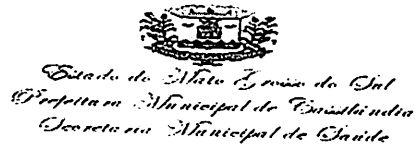 Estado de Mato Grosso do Sul
Prefeitura Municipal de Cassilândia
Secretaria Municipal de Saúde